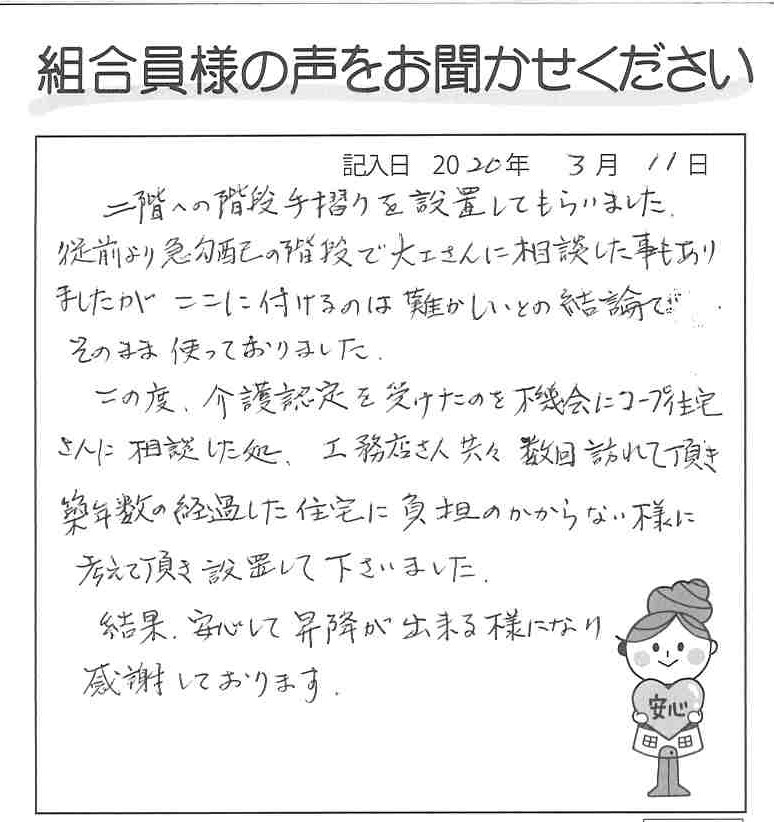 組合員様の声をお聞かせください
記入日 2020年 3月 11日
二階への階段手摺りを設置してもらいました.
従前より急勾配の階段で大工さんに相談した事もあり
ましたが ここに付けるのは難かしいとの結論で
そのまま使っておりました.
この度、介護認定を受けたのを機会にコープ住宅
さんに相談した処、工務店さん共々数回訪れて頂き
築年数の経過した住宅に負担のかからない様に
考えて頂き設置して下さいました.
結果、安心して昇降が出来る様になり
感謝しております.
安心